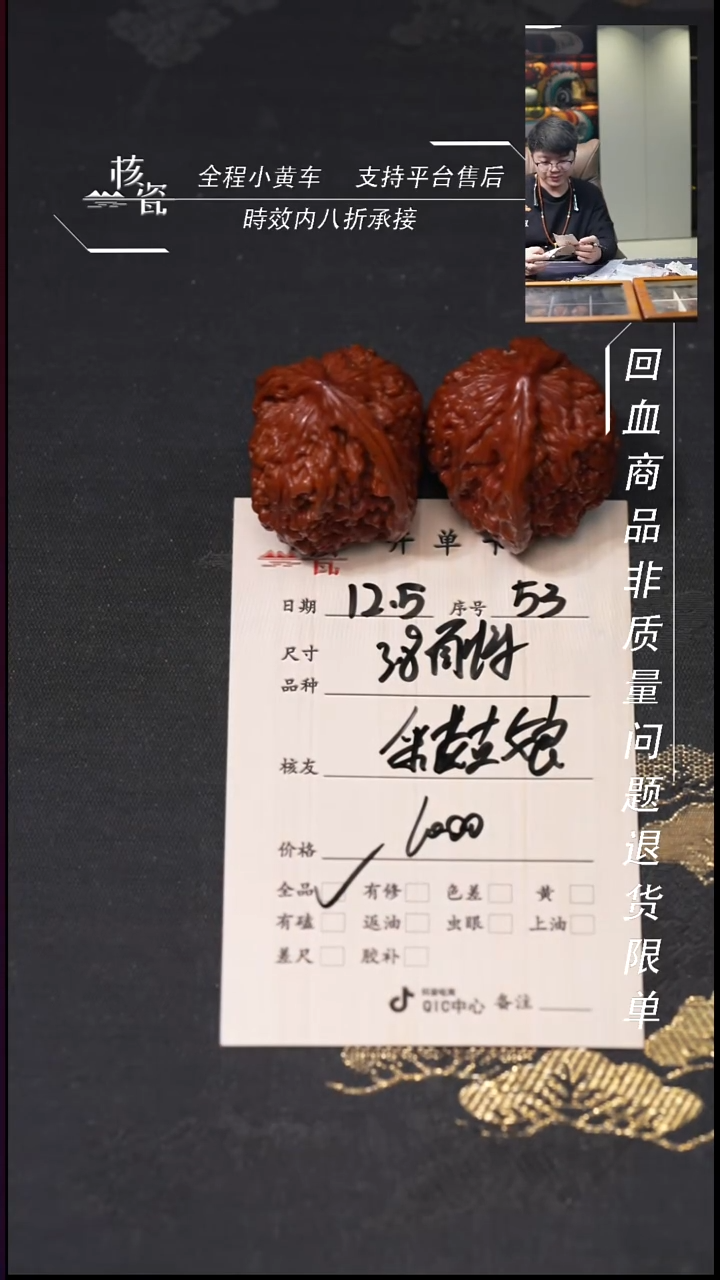 核瓷
全程小黄车 支持平台售后
時效内八折承接
回血商品非质量问题退货限单
开单卡
日期 12.5 序号 53
尺寸 38
品种
核友
价格 1000
全品 ✓ 有修 色差 黄
有磕 返油 虫眼 上油
差尺 胶补
抖音电商
QIC中心 备注